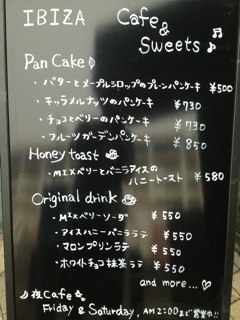 IBIZA Cafe
&
Sweets
Pan Cake
・バターとメープルシロップのプレーンパンケーキ ¥500
・キャラメルナッツのパンケーキ ¥730
・チョコとベリーのパンケーキ ¥730
・フルーツガーデンパンケーキ ¥850
Honey toast
・MIXベリーとバニラアイスの
ハニートースト ¥580
Original drink
・MIXベリーソーダ ¥550
・アイスハニーバニララテ ¥550
・マロンプリンラテ ¥550
・ホワイトチョコ抹茶ラテ ¥550
and more...♡
♪夜Cafe☆
Friday & Saturday, AM2:00まで営業中!!